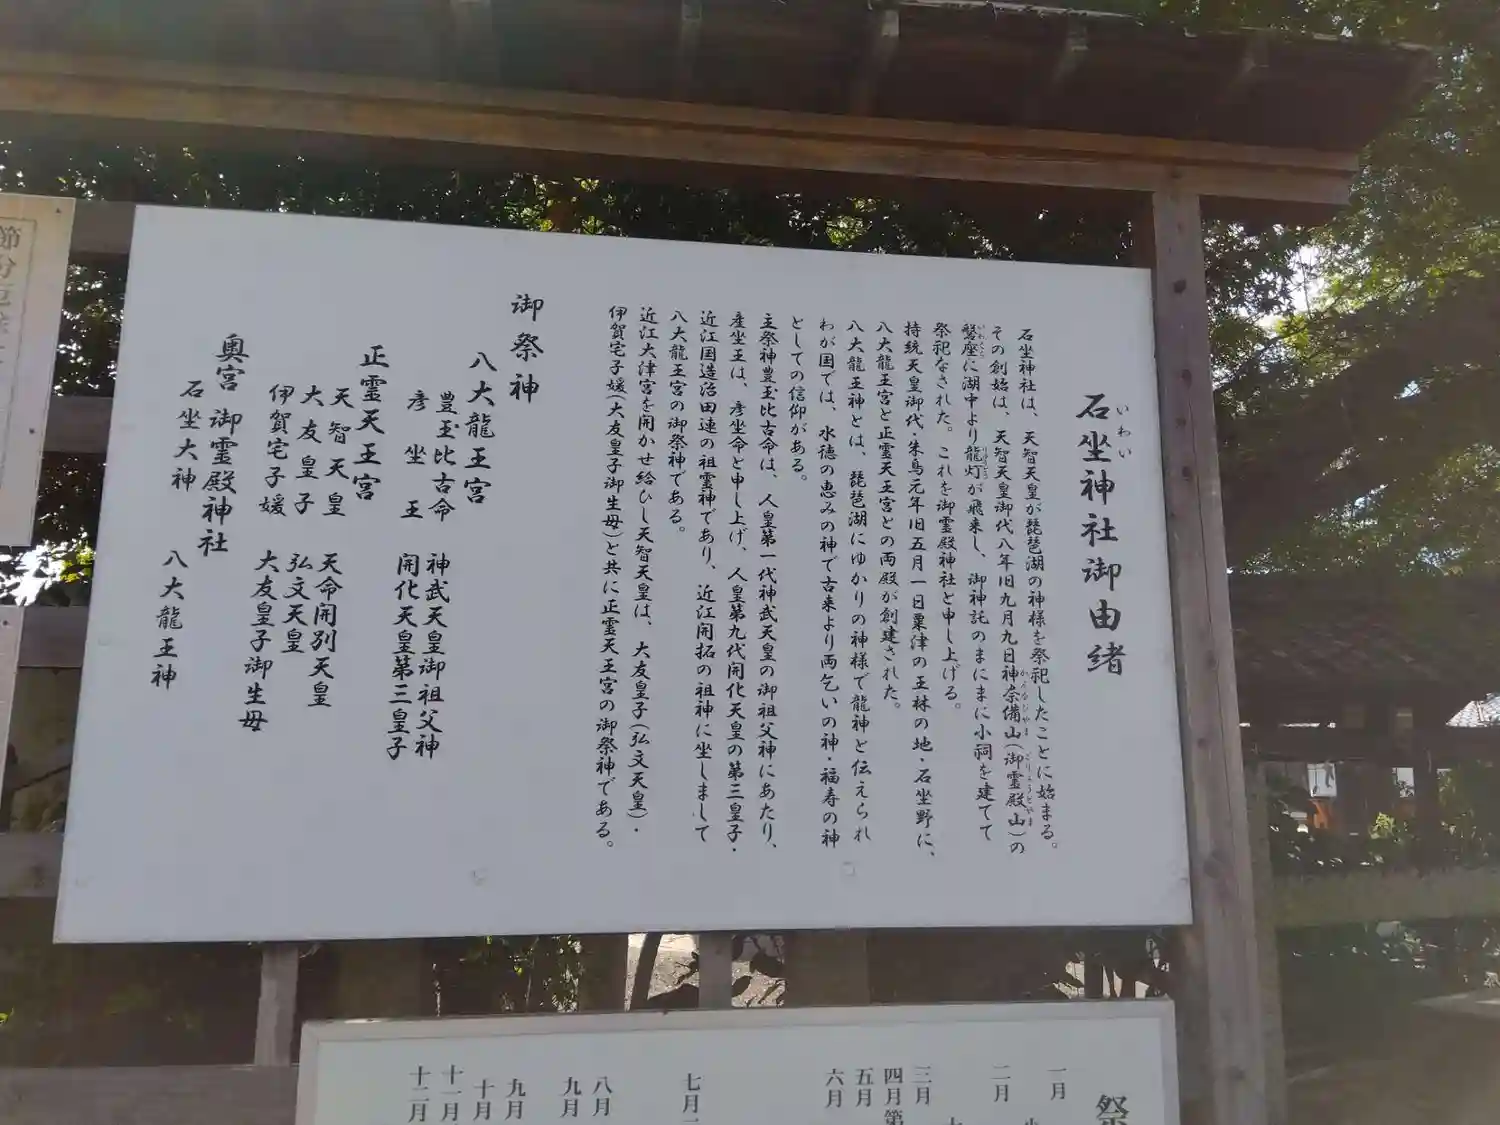 石坐神社御由緒
いわい
石坐神社は、天智天皇が琵琶湖の神様を祭祀したことに始まる。
その創始は、天智天皇御代八年旧九月九日神奈備山(御霊殿山)の
かんなびやま
ごりょうどやま
磐座に湖中より龍灯が飛来し、御神託のまにまに小祠を建てて
いわくら
祭祀なされた。これを御霊殿神社と申し上げる。
持統天皇御代・朱鳥元年旧五月一日粟津の王林の地・石坐野に、
八大龍王宮と正霊天王宮との両殿が創建された。
八大龍王神とは、琵琶湖にゆかりの神様で龍神と伝えられ
わが国では、水徳の恵みの神で古来より雨乞いの神・福寿の神
としての信仰がある。
主祭神豊玉比古命は、人皇第一代神武天皇の御祖父神にあたり、
彦坐王は、彦坐命と申し上げ、人皇第九代開化天皇の第三皇子・
近江国造治田連の祖霊神であり、近江開拓の祖神に坐しまして
八大龍王宮の御祭神である。
近江大津宮を開かせ給ひし天智天皇は、大友皇子(弘文天皇)・
伊賀宅子媛(大友皇子御生母)と共に正霊天王宮の御祭神である。
御祭神
八大龍王宮
豊玉比古命 神武天皇御祖父神
彦坐王 開化天皇第三皇子
正霊天王宮
天智天皇 天命開別天皇
大友皇子 弘文天皇
伊賀宅子媛 大友皇子御生母
奥宮 御霊殿神社
石坐大神 八大龍王神
節分
祭
一月
二月
三月
四月第
五月
六月
七月
八月
九月
九月
十月
十一月
十二月